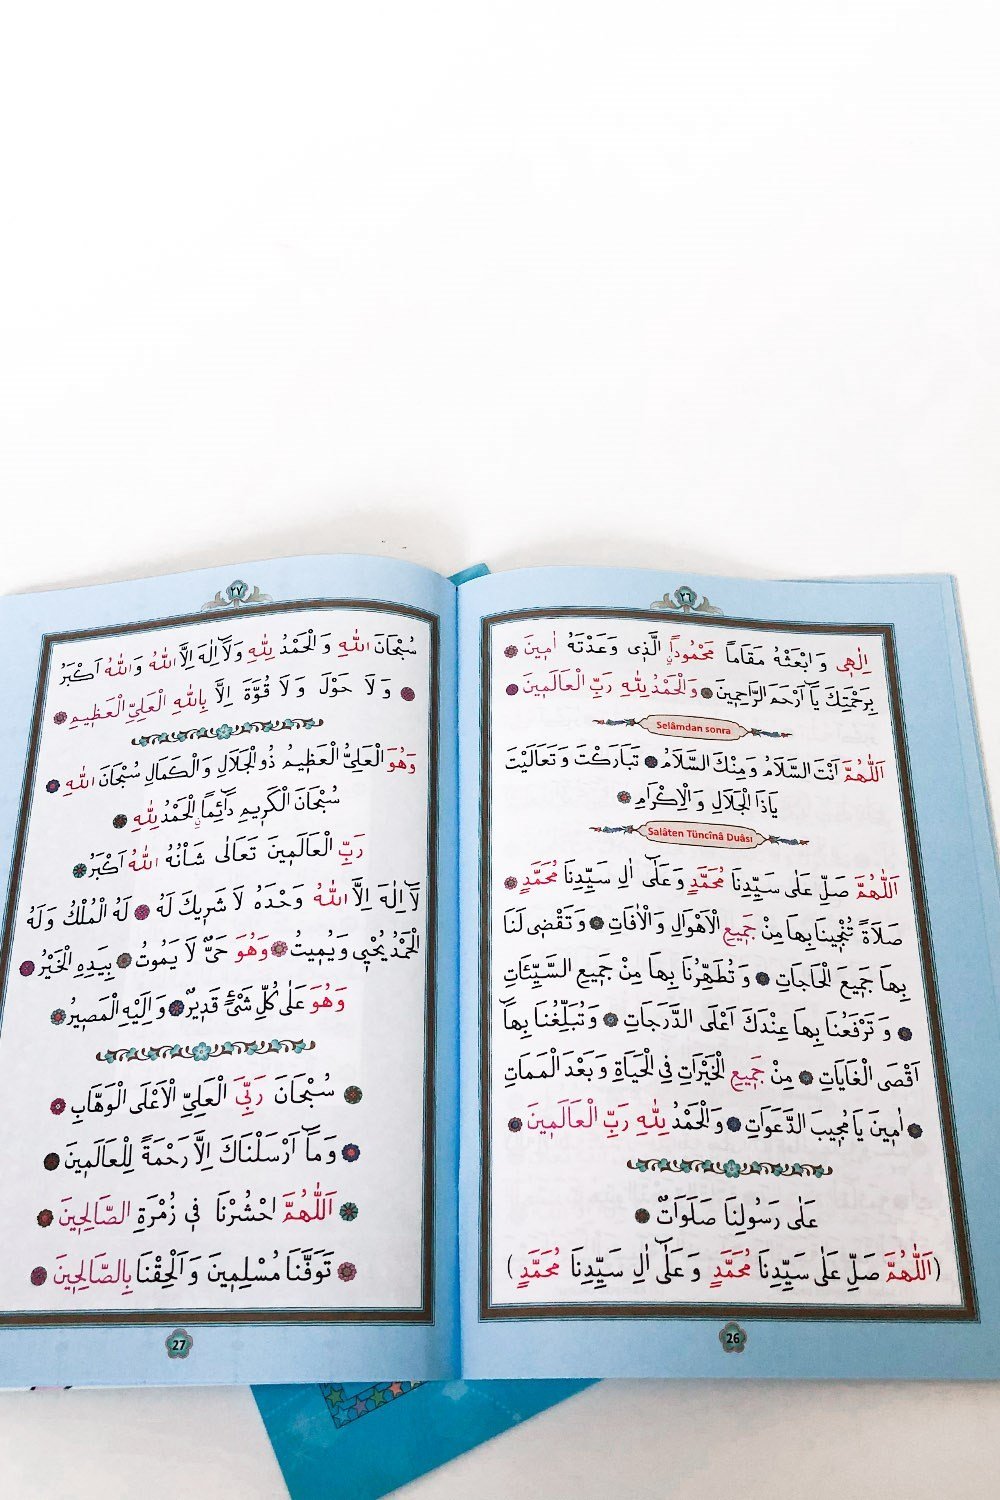 ٢٦
اِلٰهِى وَ ابْعَثْهُ مَقَاماً مَحْمُوداًۨ الَّذِى وَعَدْتَهُ اٰمِينَ
بِرَحْمَتِكَ يَٓا اَرْحَمَ الرَّاحِمِينَ وَالْحَمْدُ لِلّٰهِ رَبِّ الْعَالَمِينَ
Selâmdan sonra
اَللّٰهُمَّ اَنْتَ السَّلَامُ وَمِنْكَ السَّلَامُ تَبَارَكْتَ وَتَعَالَيْتَ
يَاذَا الْجَلَالِ وَالْاِكْرَامِ
Salâten Tüncînâ Duâsı
اَللّٰهُمَّ صَلِّ عَلٰى سَيِّدِنَا مُحَمَّدٍ وَعَلٰٓى اٰلِ سَيِّدِنَا مُحَمَّدٍ
صَلَاةً تُنْجِينَا بِهَا مِنْ جَمِيعِ الْاَهْوَالِ وَالْاٰفَاتِ وَتَقْضِى لَنَا
بِهَا جَمِيعَ الْحَاجَاتِ وَتُطَهِّرُنَا بِهَا مِنْ جَمِيعِ السَّيِّئَاتِ
وَ تَرْفَعُنَا بِهَا عِنْدَكَ اَعْلَى الدَّرَجَاتِ وَتُبَلِّغُنَا بِهَٓا
اَقْصَى الْغَايَاتِ مِنْ جَمِيعِ الْخَيْرَاتِ فِى الْحَيَاةِ وَبَعْدَ الْمَمَاتِ
اٰمِينَ يَا مُجِيبَ الدَّعَوَاتِ وَالْحَمْدُ لِلّٰهِ رَبِّ الْعَالَمِينَ
عَلٰى رَسُولِنَا صَلَوَاتٌ
(اَللّٰهُمَّ صَلِّ عَلٰى سَيِّدِنَا مُحَمَّدٍ وَعَلٰٓى اٰلِ سَيِّدِنَا مُحَمَّدٍ)
26
٢٧
سُبْحَانَ اللّٰهِ وَ الْحَمْدُ لِلّٰهِ وَلَٓا اِلٰهَ اِلَّا اللّٰهُ وَاللّٰهُ اَكْبَرُ
وَلَا حَوْلَ وَلَا قُوَّةَ اِلَّا بِاللّٰهِ الْعَلِىِّ الْعَظِيمِ
وَهُوَ الْعَلِىُّ الْعَظِيمُ ذُو الْجَلَالِ وَالْكَمَالِ سُبْحَانَ اللّٰهِ
سُبْحَانَ الْكَرِيمِ دَٓائِماًۨ الْحَمْدُ لِلّٰهِ
رَبِّ الْعَالَمِينَ تَعَالٰى شَاْنُهُ اللّٰهُ اَكْبَرُ
لَٓا اِلٰهَ اِلَّا اللّٰهُ وَحْدَهُ لَا شَرِيكَ لَهُ لَهُ الْمُلْكُ وَلَهُ
الْحَمْدُ يُحْيِى وَيُمِيتُ وَهُوَ حَىٌّ لَا يَمُوتُ بِيَدِهِ الْخَيْرُ
وَهُوَ عَلٰى كُلِّ شَىْءٍ قَدِيرٌ وَاِلَيْهِ الْمَصِيرُ
سُبْحَانَ رَبِّىَ الْعَلِىِّ الْاَعْلَى الْوَهَّابِ
وَمَٓا اَرْسَلْنَاكَ اِلَّا رَحْمَةً لِلْعَالَمِينَ
اَللّٰهُمَّ احْشُرْنَا فِى زُمْرَةِ الصَّالِحِينَ
تَوَفَّنَا مُسْلِمِينَ وَاَلْحِقْنَا بِالصَّالِحِينَ
27